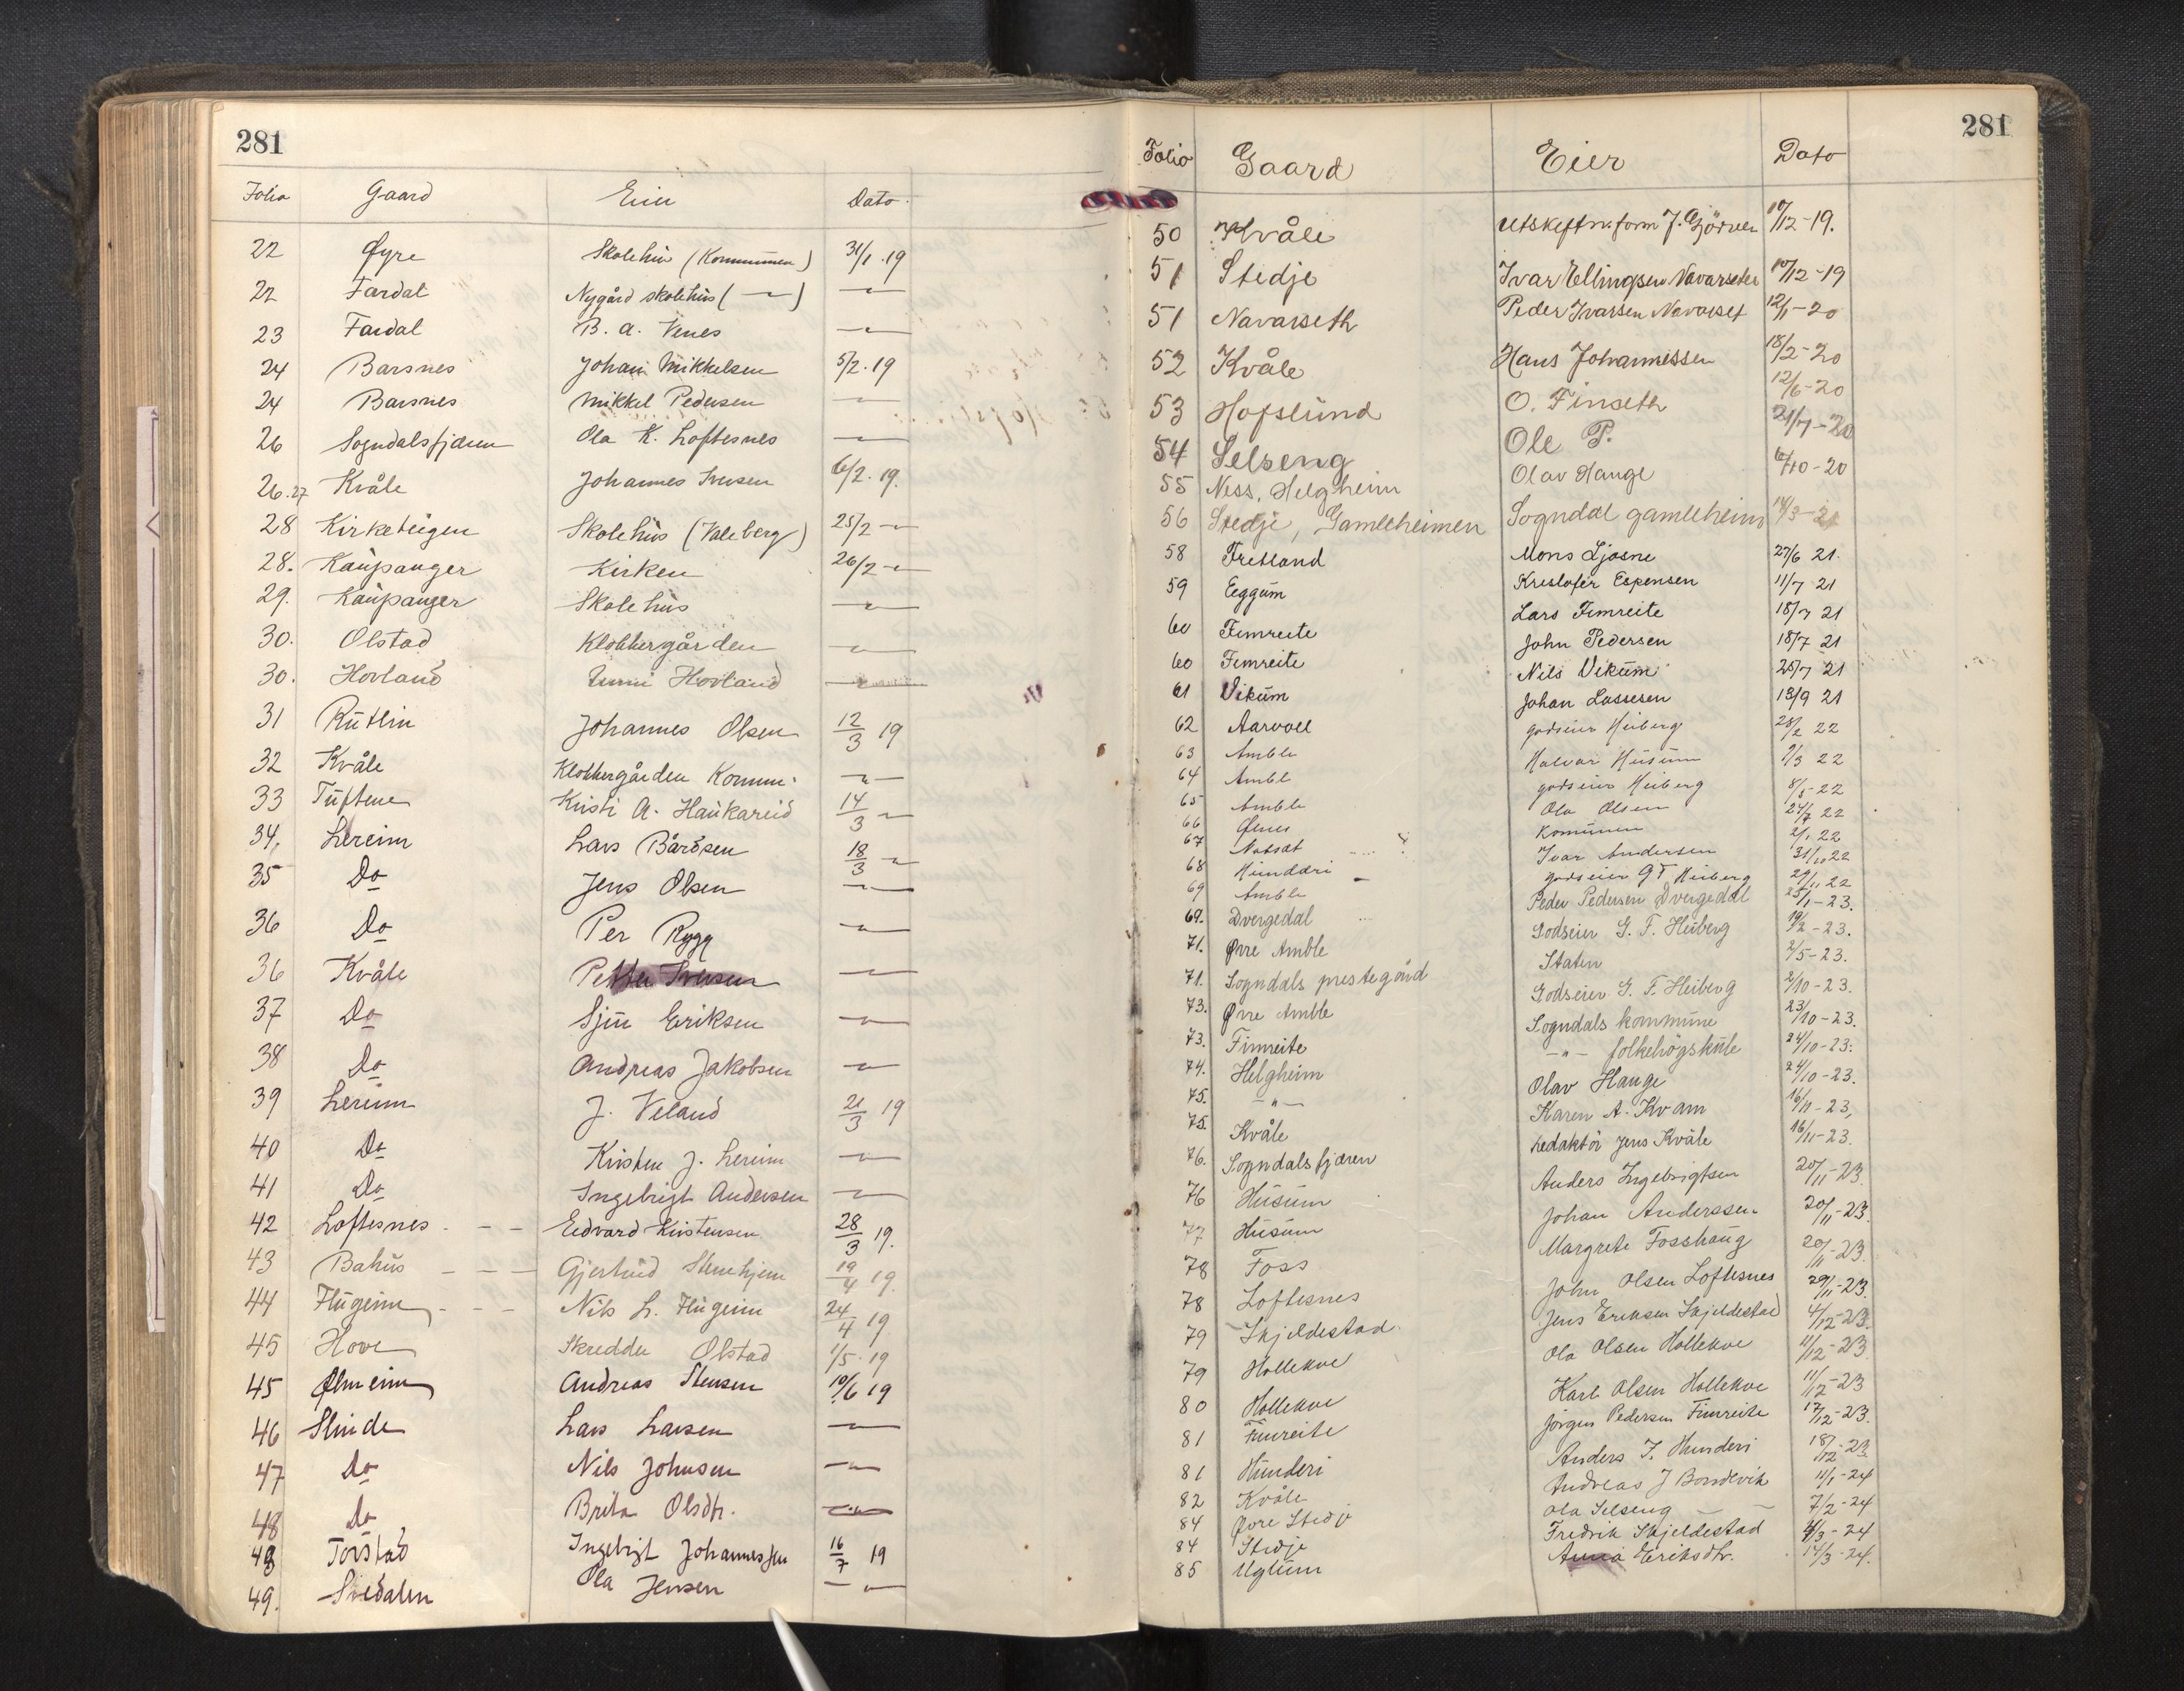 281
Folio Gaard Eier Dato
22 Øyre Skolehus (Kommunen) 31/1.19
22 Fardal Nygård skolehus ( —〃— ) —〃—
23 Fardal B. A. Venes —〃—
24 Barsnes Johan Mikkelsen 5/2.19
24 Barsnes Mikkel Pedersen —〃—
26 Sogndalsfjæren Ola K. Loftesnes —〃—
26.27 Kvåle Johannes Iversen 6/2.19.
28 Kirketeigen Skolehus (Valeberg) 25/2 —〃—
28. Kaupanger Kirken 26/2 —〃—
29. Kaupanger Skolehus —〃—
30. Olstad Klokkergården —〃—
30. Hovland Hovland —〃—
31 Rutlin Johannes Olsen 12/3 19
32 Kvåle Klokkergården Komm. —〃—
33 Tuftene Kristi A. Haukareid 14/3 —〃—
34. Lereim Lars Bårdsen 18/3 —〃—
35 Do Jens Olsen —〃—
36 Do Per Rygg —〃—
36 Kvåle Petter Iversen —〃—
37 Do Eriksen —〃—
38 Do Andreas Jakobsen —〃—
39 Lereim J. Veland 21/3 19
40 Do Kristen J. Lereim —〃—
41 Do Ingebrigt Andersen —〃—
42 Loftesnes - — — Edvard Kristensen 28/3 19.
43 Bahus — — — Gjertrud Stenehjem 19/4 19.
44 Flugeim - — — Nils L. Flugeim 24/4 19
45 Hove Skredder Olstad 1/5.19
45 Ølmeim Andreas Stensen 10/6 19
46 Slinde Lars Larsen —〃—
47 Do Nils Johnsen —〃—
48 Do Brita Olsdtr. —〃—
48 Torstad Ingebrigt Johannessen 16/7 19
49. Ola Jensen —〃—
281
Folio Gaard Eier Dato
50 Kvåle Utskiftn.form J. 10/12-19.
51 Stedje Ivar Ellingsen Navarseter 10/12-19
51 Navarseth Peder Ivarsen Navarset 12/1-20
52 Kvåle Hans Johannessen 18/2-20
53 Hofslund O. Finseth 12/6-20
54 Selseng Ole P. 21/7-20
55 Ness, Helgheim Olav Hauge 6/10-20
56 Stedje, Gamleheimen Sogndal gamleheim 14/3-21
58 Fretland Mons Ljosne 27/6 21.
59 Eggum Kristofer Espensen 11/7 21
60 Fimreite Lars Fimreite 18/7 21
60 Fimreite John Pedersen 18/7 21
61 Vikum Nils Vikum 25/7 21
62 Aarvoll Johan Lassesen 13/9 21
63 Amble godseier Heiberg 28/2 22
64 Amble Halvar Husum 1/3 22
65 Amble godseier Heiberg 8/5-22
66 Ola Olsen 24/7 22
67 kommunen 22
68 Hunderi Ivar Andersen 31/10 22
69 Amble godseier G F Heiberg 29/11 22
69. Dvergedal Peder Pedersen Dvergedal 25/1-23.
71. Øvre Amble Godseier G. F. Heiberg 19/2-23.
71. Sogndals prestegård Staten 2/5-23.
73. Øvre Amble Godseier G. F. Heiberg 2/10-23.
73. Fimreite Sogndals kommune 23/10-23.
74. Helgheim —〃— folkehögskule 24/10-23.
75. —〃— Olav Hauge 24/10-23.
75. Kvåle Karen A. Kvam 16/11-23,
76. Sogndalsfjæren redaktör Jens Kvåle 16/11-23.
76 Husum Anders Ingebrigtsen 20/11-23.
77 Husum Johan Anderssen 20/11-23.
78 Foss Margrete Fosshaug 20/11-23.
78 Loftesnes John Olsen Loftesnes 29/11-23.
79 Skjeldestad Jens Eriksen Skjeldestad 4/12-23.
79 Hollekve Ola Olsen Hollekve 11/12-23
80 Hollekve Karl Olsen Hollekve 11/12-23
81 Fimreite Jörgen Pedersen Fimreite 17/12-23.
81 Hunderi Anders I. Hunderi 18/12-23
82 Kvåle Andreas J Bondevik 11/1-24
84 Øvre Stedje Ola Selseng — — 7/2-24
84 Stedje Fredrik Skjeldestad 4/3-24
85 Uglum Anna Eriksdtr. 14/3-24.